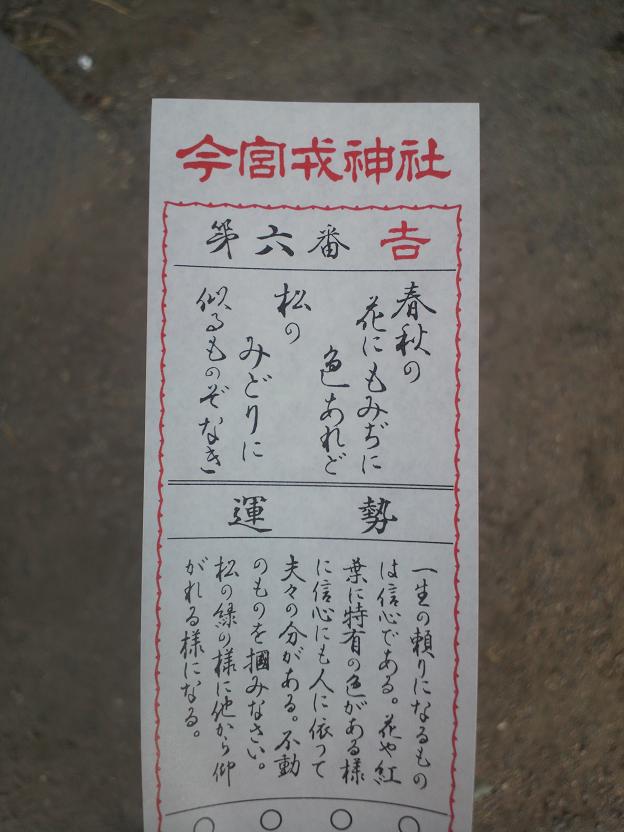 今宮戎神社
第六番 吉
春秋の
花にもみぢに
色あれど
松の
みどりに
似るものぞなき
運勢
一生の頼りになるもの
は信心である。花や紅
葉に特有の色がある様
に信心にも人に依つて
夫々の分がある。不動
のものを掴みなさい。
松の緑の様に他から仰
がれる様になる。